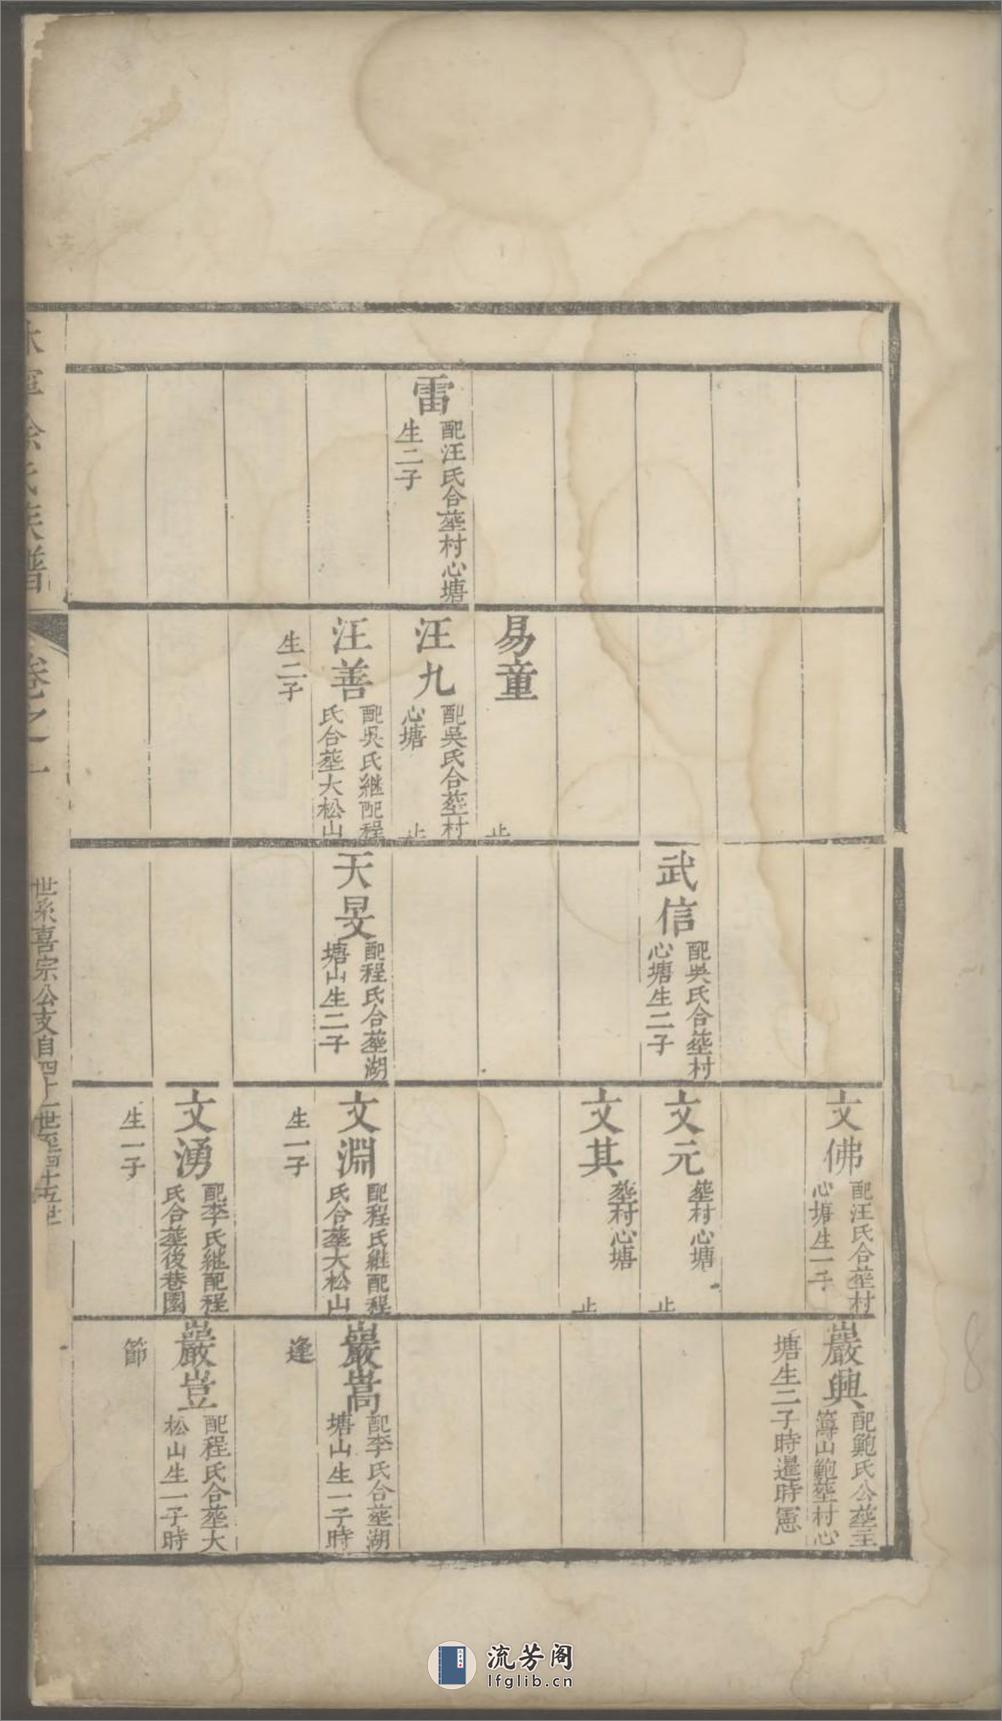 雷
配汪氏合塟村心塘
生二子
易童
止
汪九
配吳氏合塟村
心塘
止
汪善
配吳氏継配程
氏合塟大松山
生二子
武信
配吳氏合塟村
心塘生二子
天旻
配程氏合塟湖
塘山生二子
文佛
配汪氏合塟村
心塘生一子
文元
塟村心塘
止
文其
塟村心塘
止
文淵
配程氏継配程
氏合塟大松山
生一子
文湧
配李氏継配程
氏合塟後巷園
生一子
巖興
配鮑氏公塟主
簿山鮑塟村心
塘生二子時暹時憲
巖嵩
配李氏合塟湖
塘山生一子時
逢
巖豈
配程氏合塟大
松山生一子時
節
休寧徐氏族譜
卷之一
世系喜宗公支自四十一世至四十五世
流芳阁
lfglib.cn